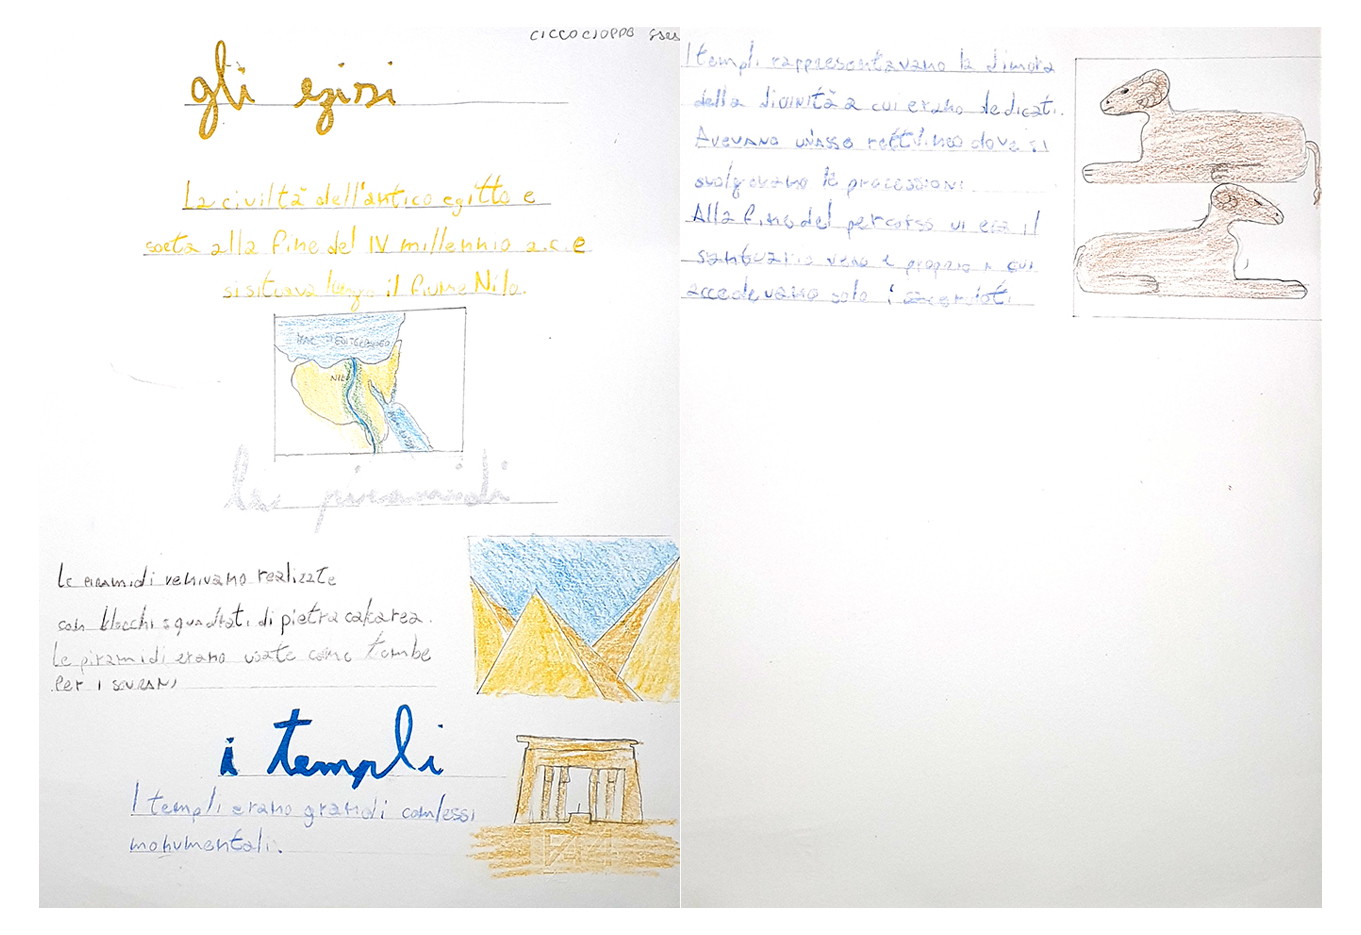 CICCOCIOPPO
gli egizi
La civiltà dell'antico egitto e
sorta alla fine del IV millennio a.c. e
si situava lungo il fiume Nilo.
MAR MEDITERRANEO
NILO
le piramidi
Le piramidi venivano realizzate
con blocchi squadrati di pietra calcarea.
Le piramidi erano usate come tombe
Per i sovrani
i templi
I templi erano grandi complessi
monumentali.
I templi rappresentavano la dimora
della divinità a cui erano dedicati.
Avevano un'asse rettilineo dove si
svolgevano le processioni
Alla fine del percorso vi era il
santuario vero e proprio a cui
accedevano solo i sacerdoti